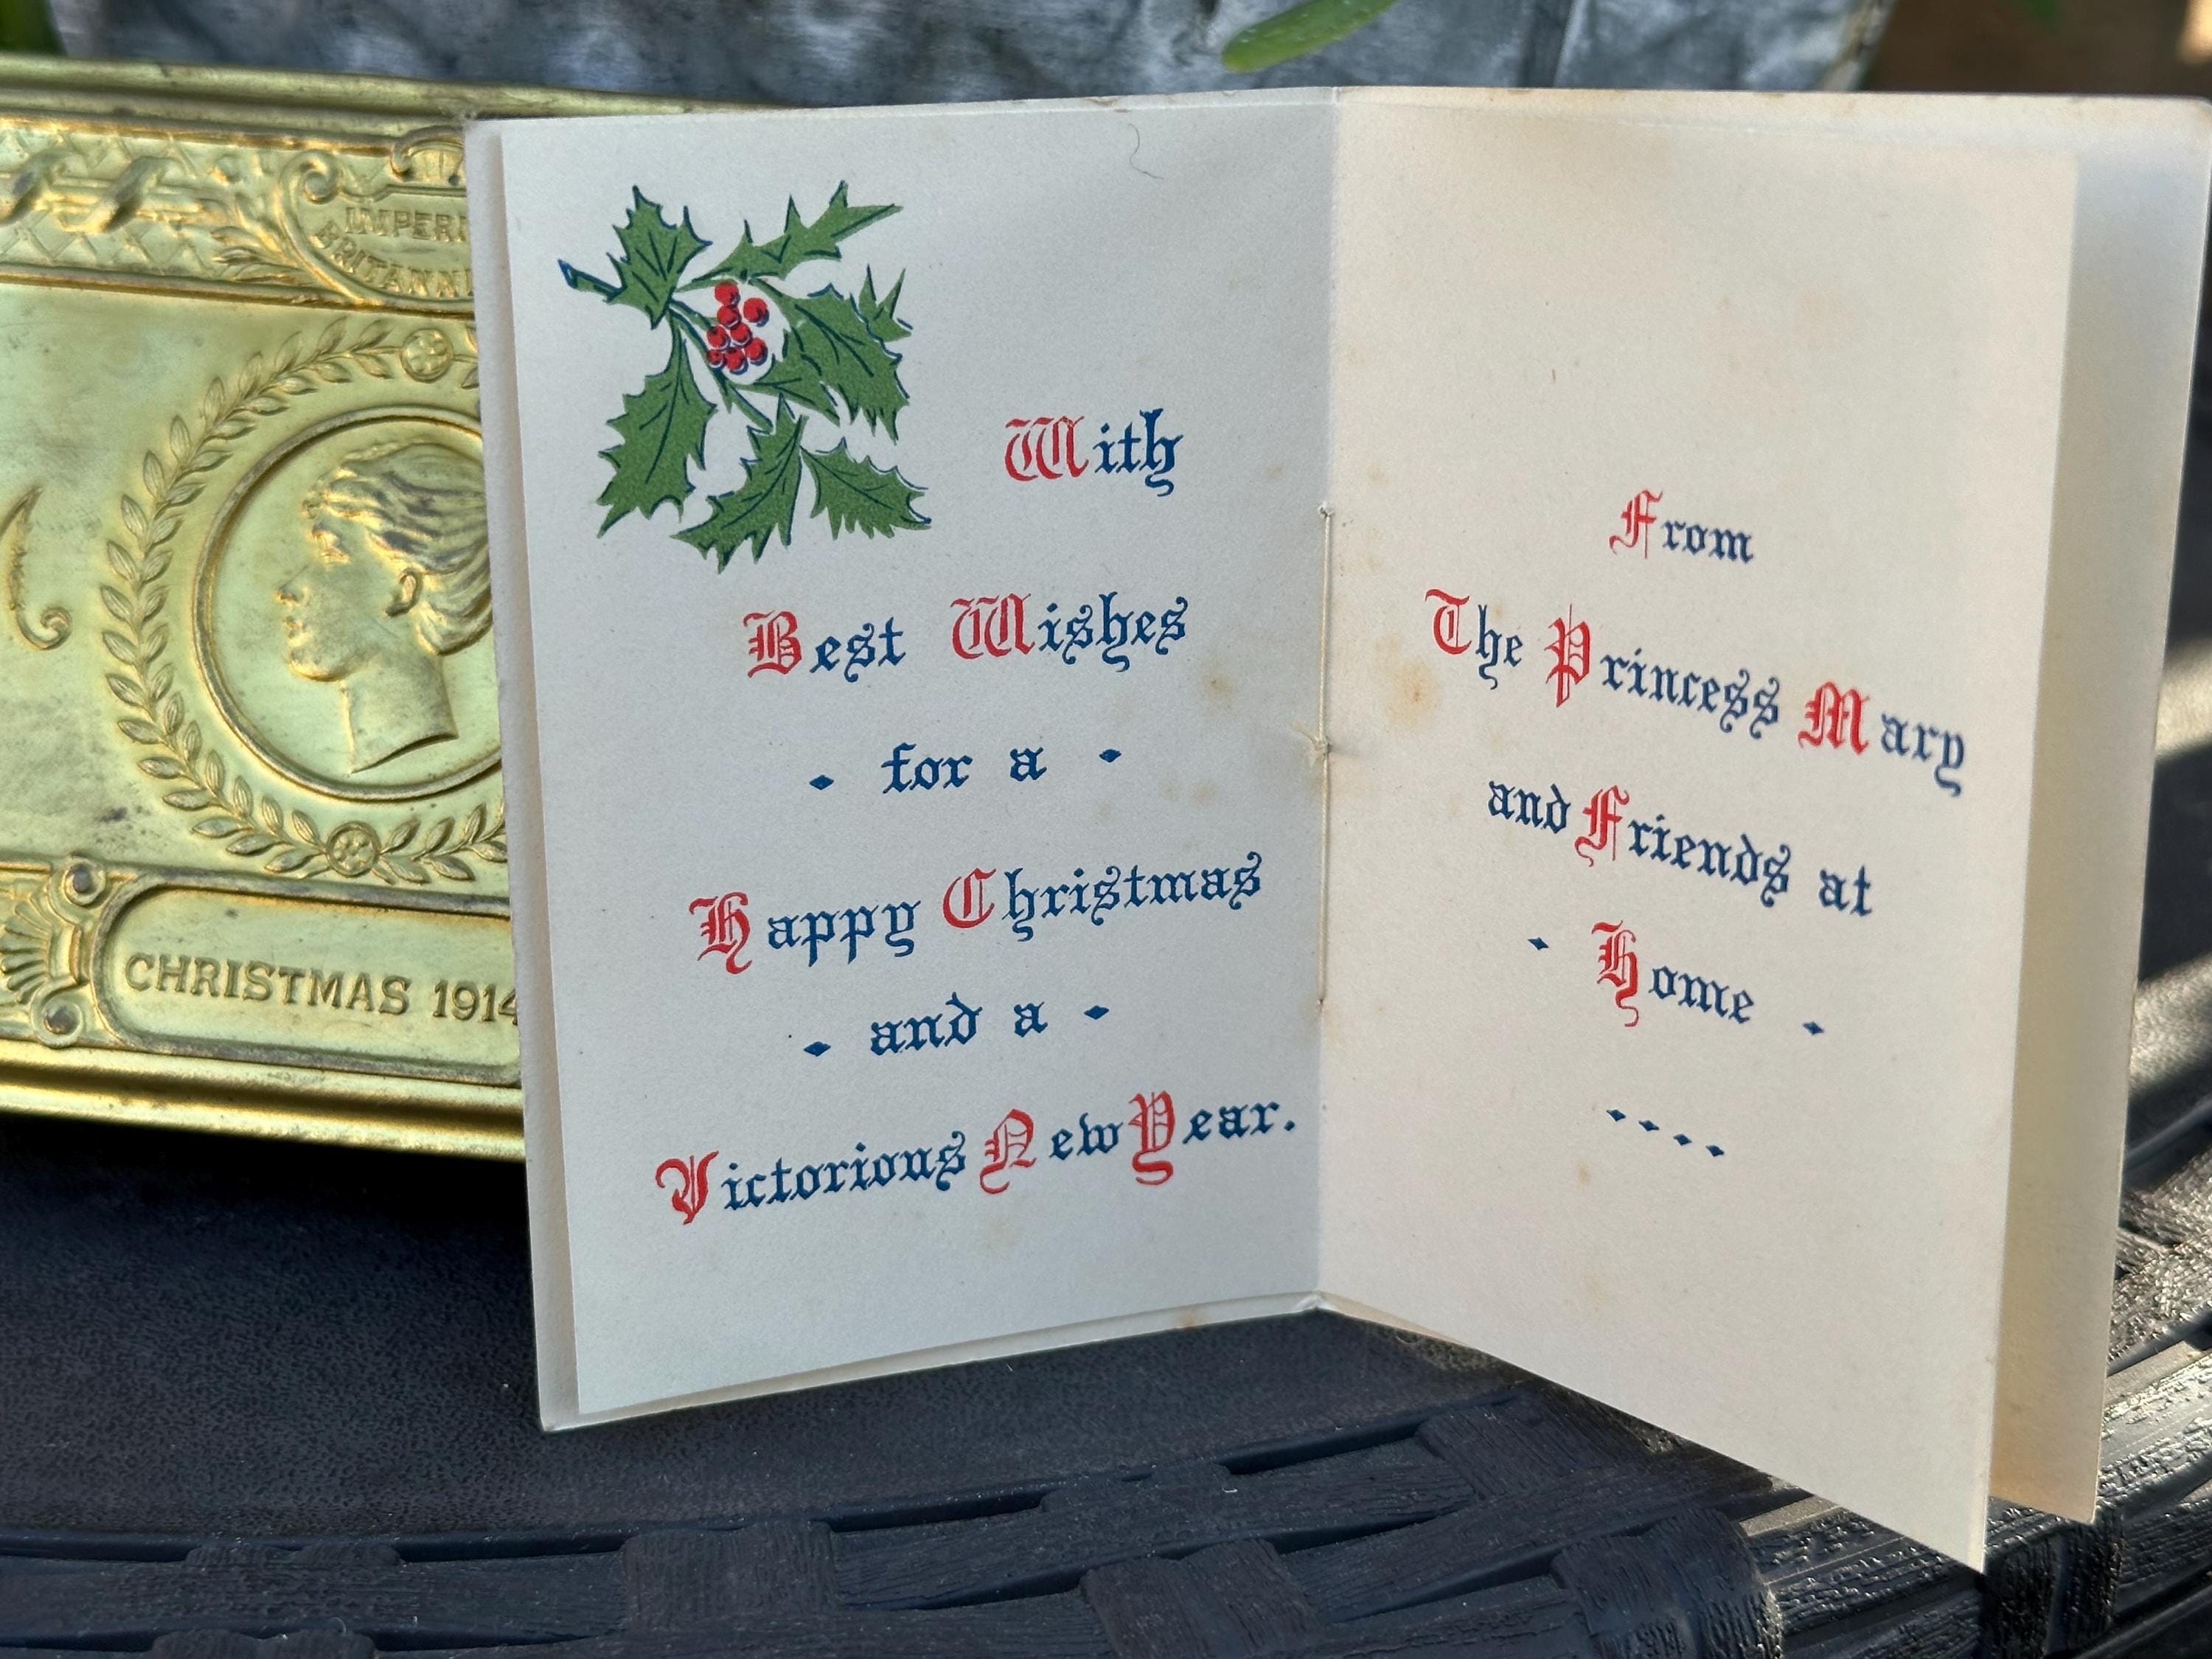 IMPERI
BRITANNI
CHRISTMAS 1914
With
Best Wishes
- for a -
Happy Christmas
- and a -
Victorious New Year.
From
The Princess Mary
and Friends at
- Home -